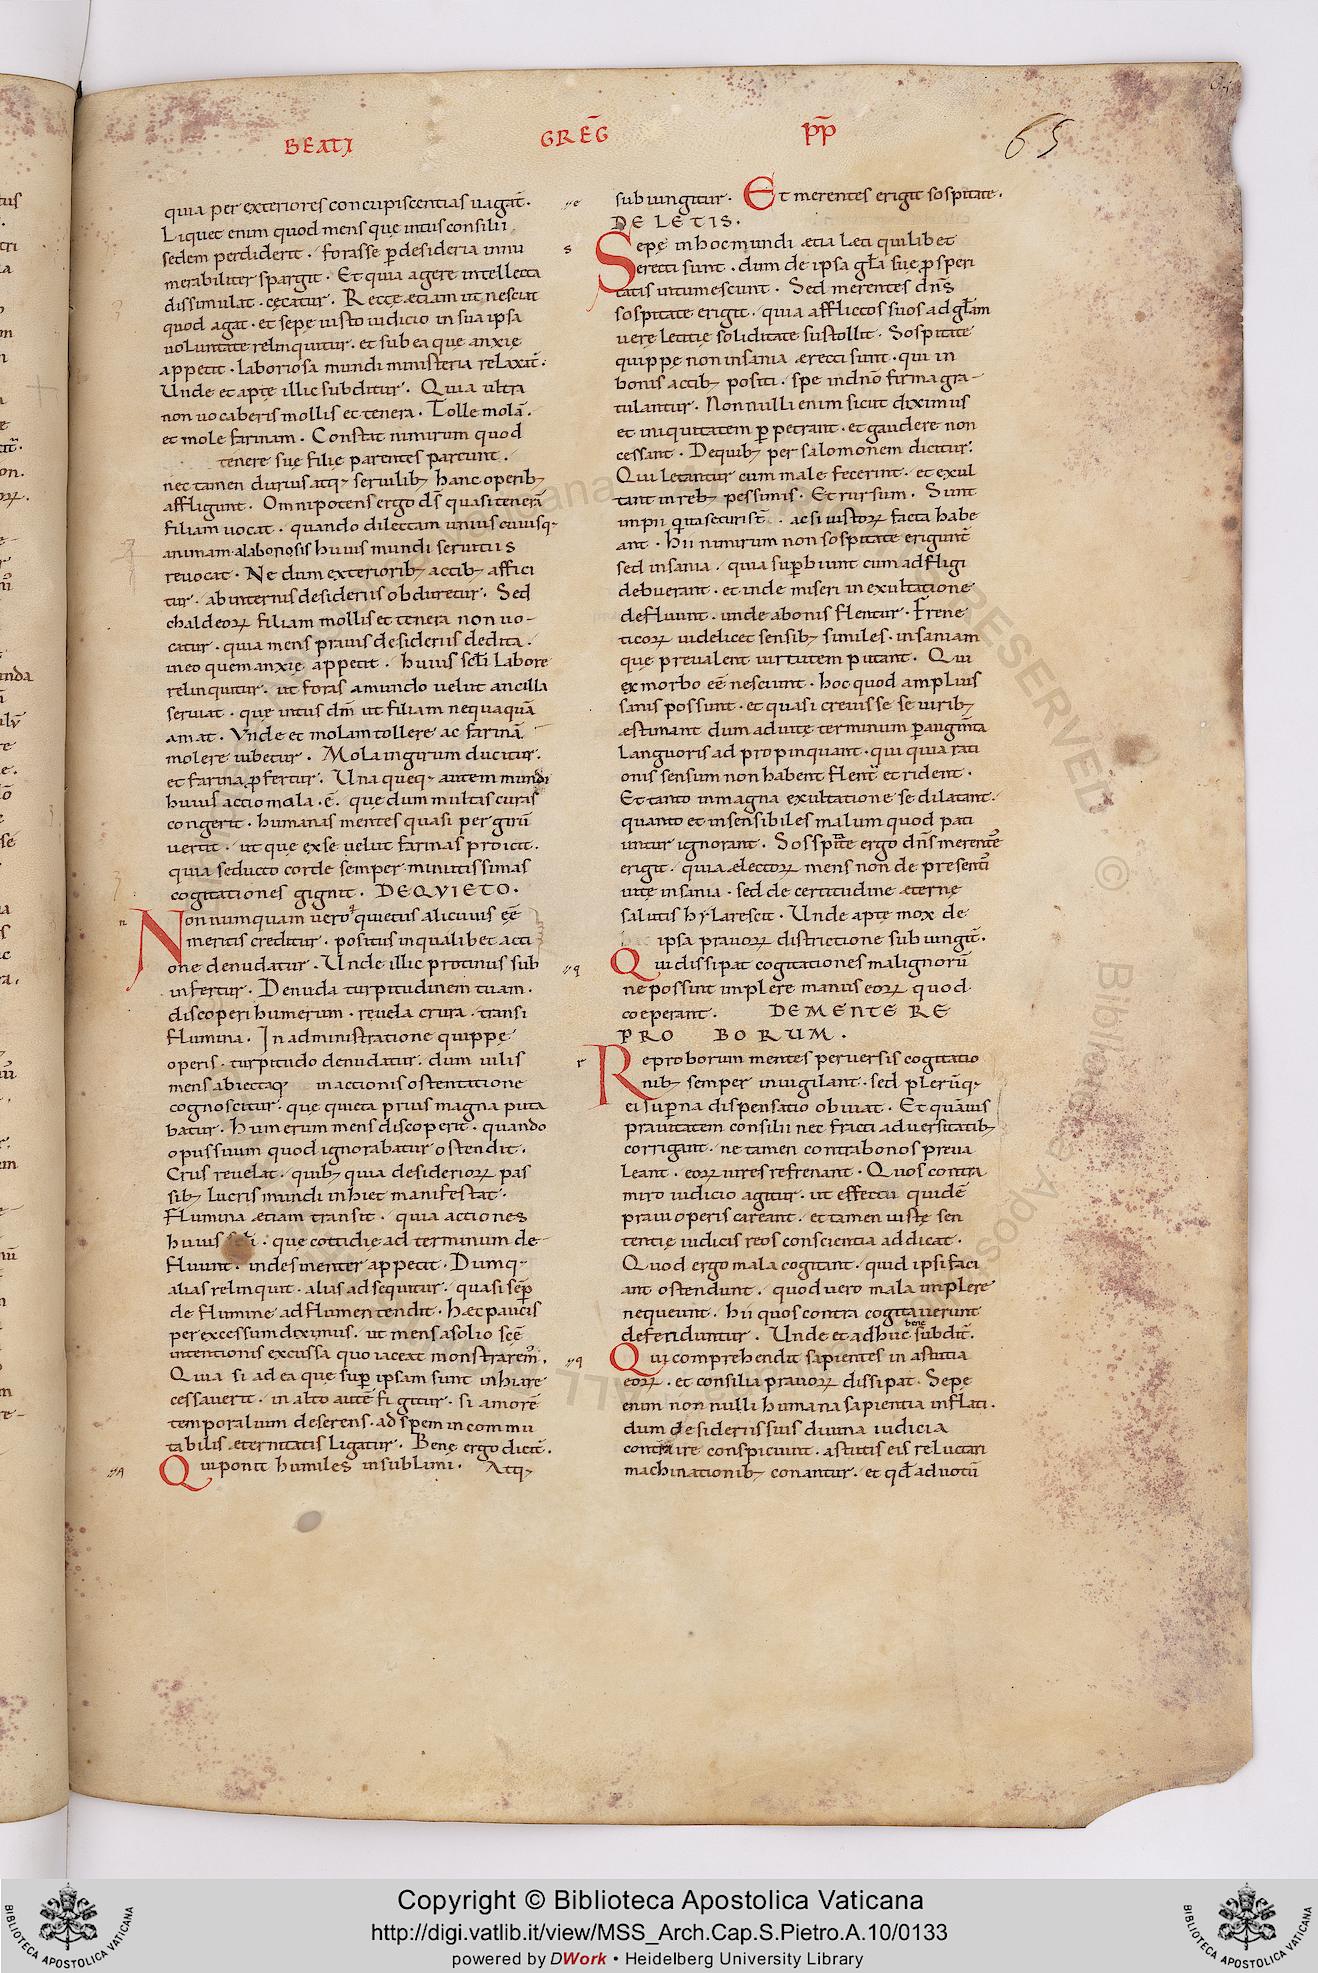 BEATI GREḠ P̄P̄
65
quia per exteriores concupiscentias uagat̄.
Liquet enim quod mens quę intus consilii
sedem perdiderit. forasse p̱ desideria innu
merabiliter spargit. Et quia agere intellecta
dissimulat. cęcatur. Recte ętiam ut nesciat
quod agat. et sepe iusto iudicio in sua ipsa
uoluntate relinquitur. et sub ea que anxie
appetit. laboriosa mundi ministeria relaxat̄.
Unde et apte illic subditur. Quia ultra
non uocaberis mollis et tenera. Tolle molā.
et mole farinam. Constat nimirum quod
tenere suę filię parentes parcunt.
nec tamen durius atq; seruilib; hanc operib;
affligunt. Omnipotens ergo ds̄ quasi tenerā
filiam uocat. quando dilectam unius cuiusq;
animam. a laboriosis huius mundi seruitiis
reuocat. Ne dum exteriorib; actib; affici
tur. ab internis desideriis obduretur. Sed
chaldeoꝝ filiam mollis et tenera non uo-
catur. quia mens prauis desideriis dedita.
in eo quem anxie appetit. huius sc̄li labore
relinquitur. ut foras a mundo uelut ancilla
seruiat. quę intus dm̄ ut filiam nequaquā
amat. Unde et molam tollere ac farinā
molere iubetur. Mola in girum ducitur.
et farina ꝓfertur. Una queq; autem mundi
huius actio mola. ē. que dum multas curas
congerit. humanas mentes quasi per girū
uertit. ut que ex se uelut farinas proicit.
quia seducto corde semper minutissimas
cogitationes gignit. DE QVIETO.
n
Non numquam uero quietus alicuius eē
meritis creditur. positus in qualibet acti
one denudatur. Unde illic protinus sub
infertur. Denuda turpitudinem tuam.
discoperi humerum. reuela crura. transi
flumina. In administratione quippe
operis. turpitudo denudatur. dum uilis
mens abiectaq; in actionis ostentatione
cognoscitur. que quieta prius magna puta
batur. humerum mens discoperit. quando
opus suum quod ignorabatur ostendit.
Crus reuelat. quib; quia desiderioꝝ pas
sib; lucris mundi inhiet manifestat.
Flumina ętiam transit. quia actiones
huius sc̄li. que cottidię ad terminum de-
fluunt. indesinenter appetit. Dumq;
alias relinquit. alias adsequitur. quasi sep̱
de flumine ad flumen tendit. Haec paucis
per excessum diximus. ut mens a solio sc̄ē
intentionis excussa quo iaceat monstrarem̄.
Quia si ad ea quę sup̱ ipsam sunt inhiare
cessauerit. in alto autē figitur. si amorē
temporalium deserens. ad spem incommu
tabilis ęternitatis ligatur. Bene ergo dicit̄.
Qui ponit humiles in sublimi. Atq;
subiungitur. Et merentes erigit sospitate.
DE LETIS.
s
Sepę in hoc mundi ętia leti quilibet
erecti sunt. dum de ipsa gl̄a suę ꝓsperi
tatis intumescunt. Sed merentes dn̄s
sospitate erigit. quia afflictos suos ad gl̄am
uerę letitię soliditate sustollit. Sospitate
quippę non insania ęrecti sunt. qui in
bonis actib; positi. spe in dn̄o firma gra-
tulantur. Non nulli enim sicut diximus
et iniquitatem p̱petrant. et gaudere non
cessant. De quib; per salomonem dicitur.
Qui letantur cum male fecerint. et exul
tant in reb; pessimis. Et rursum. Sunt
impii qui ita securi st̄. ac si iustoꝝ facta habe
ant. Hii nimirum non sospitate erigunt̄
sed insania. quia sup̱biunt cum adfligi
debuerant. et inde miseri in exultatione
defluunt. unde a bonis flentur. Frene
ticoꝝ uidelicet sensib; similes. insaniam
que preualent uirtutem putant. Qui
ex morbo eē nesciunt. hoc quod amplius
sanis possunt. et quasi creuisse se uirib;
ęstimant dum ad uitę terminum p̱ augm̄ta
languoris adpropinquant. qui quia rati
onis sensum non habent flent̄ et rident.
Et tanto in magna exultatione se dilatant.
quanto et insensibiles malum quod pati
untur ignorant. Sosspitate ergo dn̄s merentes
erigit. quia electoꝝ mens non de presentis
uitę insania. sed de certitudine ęternę
salutis hylarescit. Unde apte mox de
ipsa prauoꝝ districtione subiungit̄.
Qui dissipat cogitationes malignorū
ne possint implere manus eoꝝ quod
coeperant. DE MENTE RE
PROBORUM.
r
Reproborum mentes peruersis cogitatio
nib; semper inuigilant. sed plerūq;
ei sup̱na dispensatio obuiat. Et quāuis
prauitatem consilii nec fracti aduersitatib;
corrigant. ne tamen contra bonos preua
leant. eoꝝ uires refrenant. Quos contra
miro iudicio agitur. ut effectu quidē
praui operis careant. et tamen iustę sen
tentię iudicis reos conscientia addicat.
Quod ergo mala cogitant. quid ipsi faci
ant ostendunt. quod uero mala implere
nequeunt. hii quos contra cogitauerunt
defenduntur. Unde et adhuc bene subdit̄.
Qui comprehendit sapientes in astutia
eoꝝ. et consilia prauoꝝ dissipat. Sepę
enim non nulli humana sapientia inflati.
dum desideriis suis diuina iudicia
contraire conspiciunt. astutis eis reluctari
machinationib; conantur. et qd̄ ad uotū
Copyright © Biblioteca Apostolica Vaticana
http://digi.vatlib.it/view/MSS_Arch.Cap.S.Pietro.A.10/0133
powered by DWork • Heidelberg University Library
BIBLIOTECA APOSTOLICA VATICANA
BIBLIOTECA APOSTOLICA VATICANA